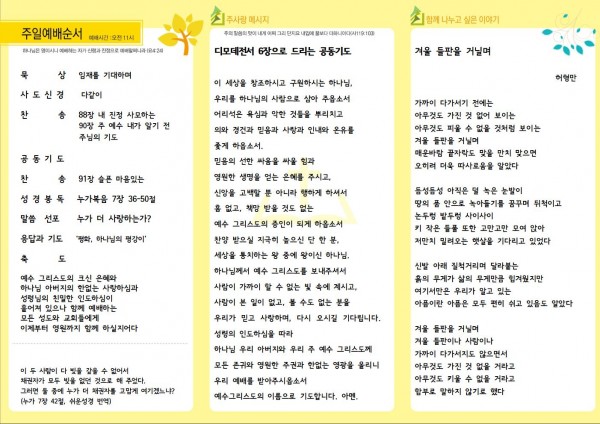 주일예배순서
예배시간 : 오전 11시
하나님은 영이시니 예배하는 자가 신령과 진정으로 예배할찌니라 (요4:24)
묵 상 임재를 기대하며
사 도 신 경 다같이
찬 송 88장 내 진정 사모하는
90장 주 예수 내가 알기 전
주님의 기도
공 동 기 도
찬 송 91장 슬픈 마음있는
성 경 봉 독 누가복음 7장 36-50절
말씀 선포 누가 더 사랑하는가?
응답과 기도 '평화, 하나님의 평강이'
축 도
예수 그리스도의 크신 은혜와
하나님 아버지의 한없는 사랑하심과
성령님의 친밀한 인도하심이
흩어져 있으나 함께 예배하는
모든 성도와 교회들에게
이제부터 영원까지 함께 하실지어다
이 두 사람이 다 빚을 갚을 수 없어서
채권자가 모두 빚을 없던 것으로 해 주었다.
그러면 둘 중에 누가 더 채권자를 고맙게 여기겠느냐?
(누가 7장 42절, 쉬운성경 번역)
주사랑 메시지
주의 말씀의 맛이 내게 어찌 그리 단지요 내입에 꿀보다 더하니이다(시119:103)
디모데전서 6장으로 드리는 공동기도
이 세상을 창조하시고 구원하시는 하나님,
우리를 하나님의 사람으로 살아 주옵소서
어리석은 욕심과 악한 것들을 뿌리치고
의와 경건과 믿음과 사랑과 인내와 온유를
좇게 하옵소서.
믿음의 선한 싸움을 싸울 힘과
영원한 생명을 얻는 은혜를 주시고,
신앙을 고백할 뿐 아니라 행하게 하셔서
흠 없고, 책망 받을 것도 없는
예수 그리스도의 증인이 되게 하옵소서
찬양 받으실 지극히 높으신 단 한 분,
세상을 통치하는 왕 중에 왕이신 하나님,
하나님께서 예수 그리스도를 보내주셔서
사람이 가까이 할 수 없는 빛 속에 계시고,
사람이 본 일이 없고, 볼 수도 없는 분을
우리가 믿고 사랑하며, 다시 오시길 기다립니다.
성령의 인도하심을 따라
하나님 우리 아버지와 우리 주 예수 그리스도께
모든 존귀와 영원한 주권과 한없는 영광을 올리니
우리 예배를 받아주시옵소서
예수그리스도의 이름으로 기도합니다. 아멘.
함께 나누고 싶은 이야기
겨울 들판을 거닐며
허형만
가까이 다가서기 전에는
아무것도 가진 것 없어 보이는
아무것도 피울 수 없을 것처럼 보이는
겨울 들판을 거닐며
매운바람 끝자락도 맞을 만치 맞으면
오히려 더욱 따사로움을 알았다
듬성듬성 아직은 덜 녹은 눈발이
땅의 품 안으로 녹아들기를 꿈꾸며 뒤척이고
논두렁 밭두렁 사이사이
키 작은 풀들 또한 고만고만 모여 앉아
저만치 밀려오는 햇살을 기다리고 있었다
신발 아래 질척거리며 달라붙는
흙의 무게가 삶의 무게만큼 힘겨웠지만
여기서만은 우리가 알고 있는
아픔이란 아픔은 모두 편히 쉬고 있음도 알았다
겨울 들판을 거닐며
겨울 들판이나 사람이나
가까이 다가서지도 않으면서
아무것도 가진 것 없을 거라고
아무것도 키울 수 없을 거라고
함부로 말하지 않기로 했다